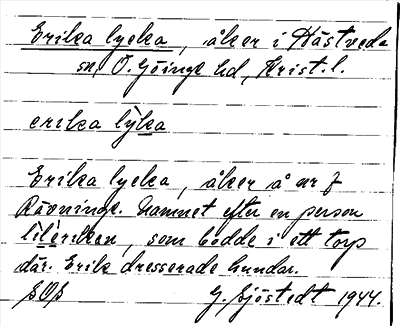 Erika lycka, åker i Hästveda
sn, Ö. Göinge hd, Krist. l.
erika lỳka
Erika lycka, åker å nr 7
Rävninge. Namnet efter en person
, som bodde i ett torp
där. Erik dresserade hundar.
G. Sjöstedt 1944.